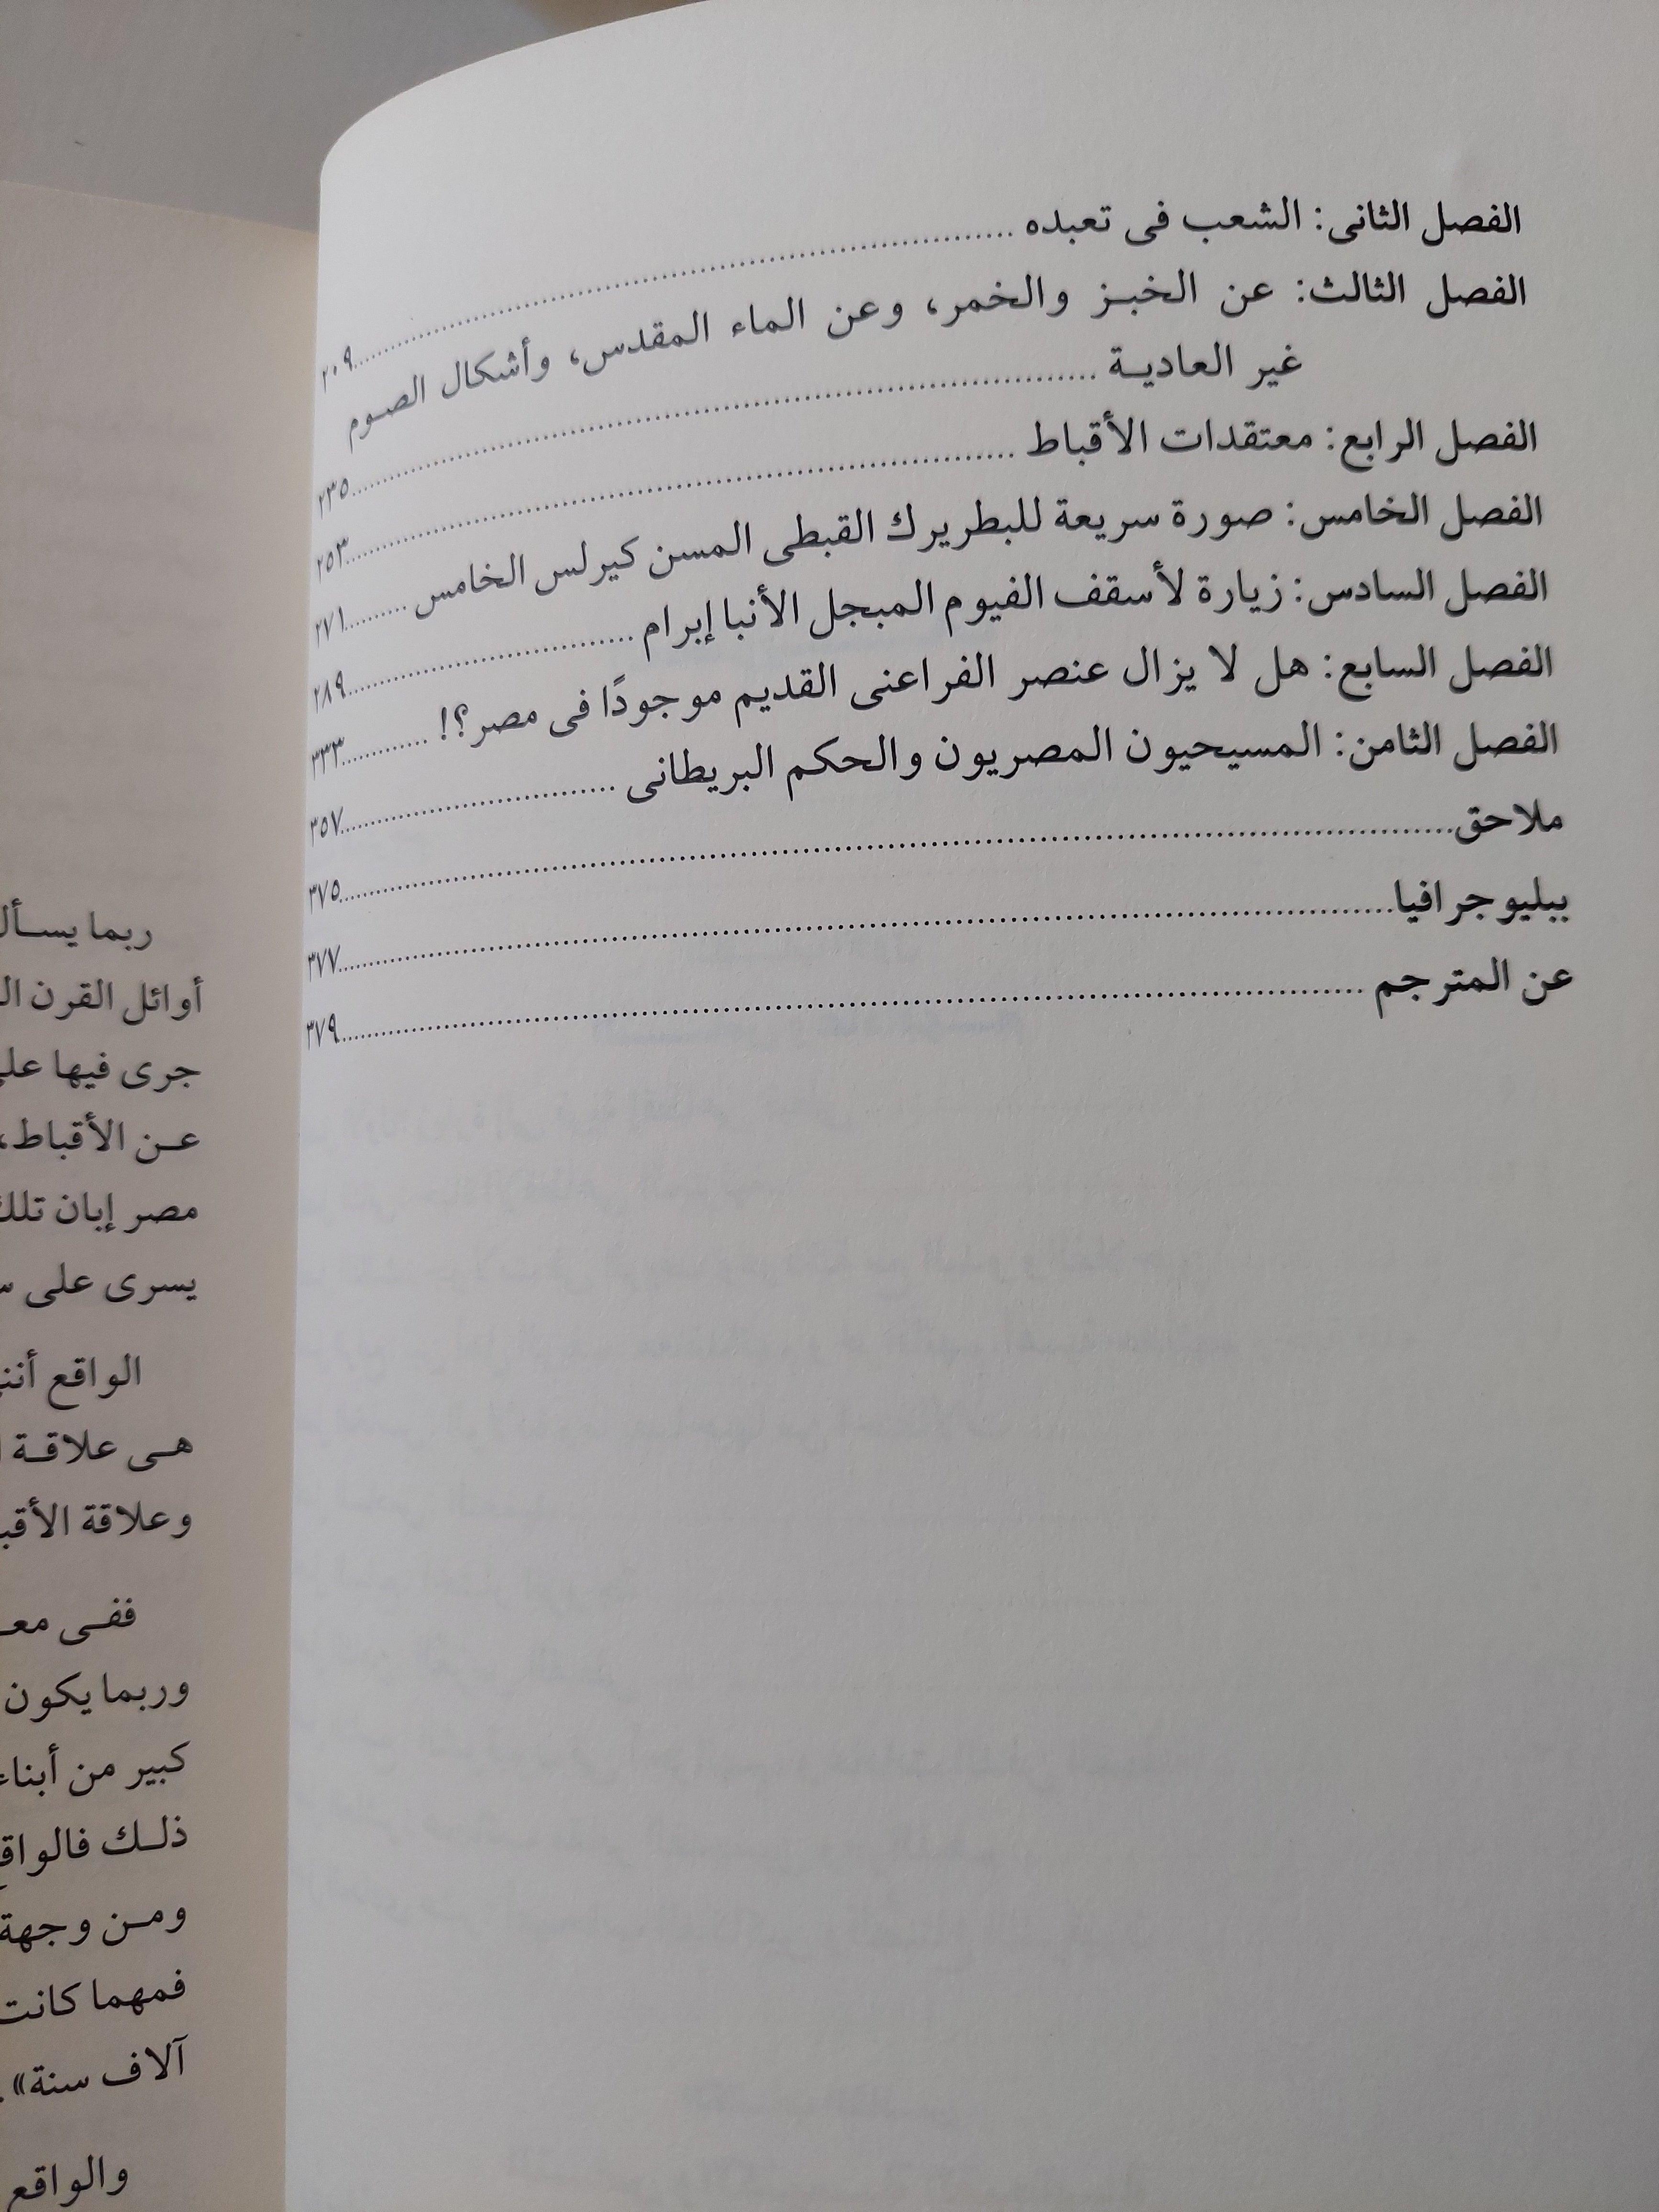 الفصل الثانى: الشعب فى تعبده ........ ٢٠٩
الفصل الثالث: عن الخبـز والخمر، وعن الماء المقدس، وأشكال الصوم
غير العاديـة ........ ٢٣٥
الفصل الرابع: معتقدات الأقباط ........ ٢٥٣
الفصل الخامس: صورة سريعة للبطريرك القبطى المسن كيرلس الخامس ........ ٢٧١
الفصل السادس: زيارة لأسقف الفيوم المبجل الأنبا إبرام ........ ٢٨٩
الفصل السابع: هل لا يزال عنصر الفراعنى القديم موجودًا فى مصر؟! ........ ٣٣٣
الفصل الثامن: المسيحيون المصريون والحكم البريطانى ........ ٣٥٧
ملاحق ........ ٣٧٥
ببليوجرافيا ........ ٣٧٧
عن المترجم ........ ٣٧٩
ربما يسـأل
أوائل القرن
جرى فيها
عـن الأقباط،
مصر إبان تلك
يسرى على
الواقع
هـى علاقـة
وعلاقة
ففـى
وربما يكون
كبير من أبناء
ذلـك
ومـن وجهة
فمهما كانت
آلاف سنة».
والواقع